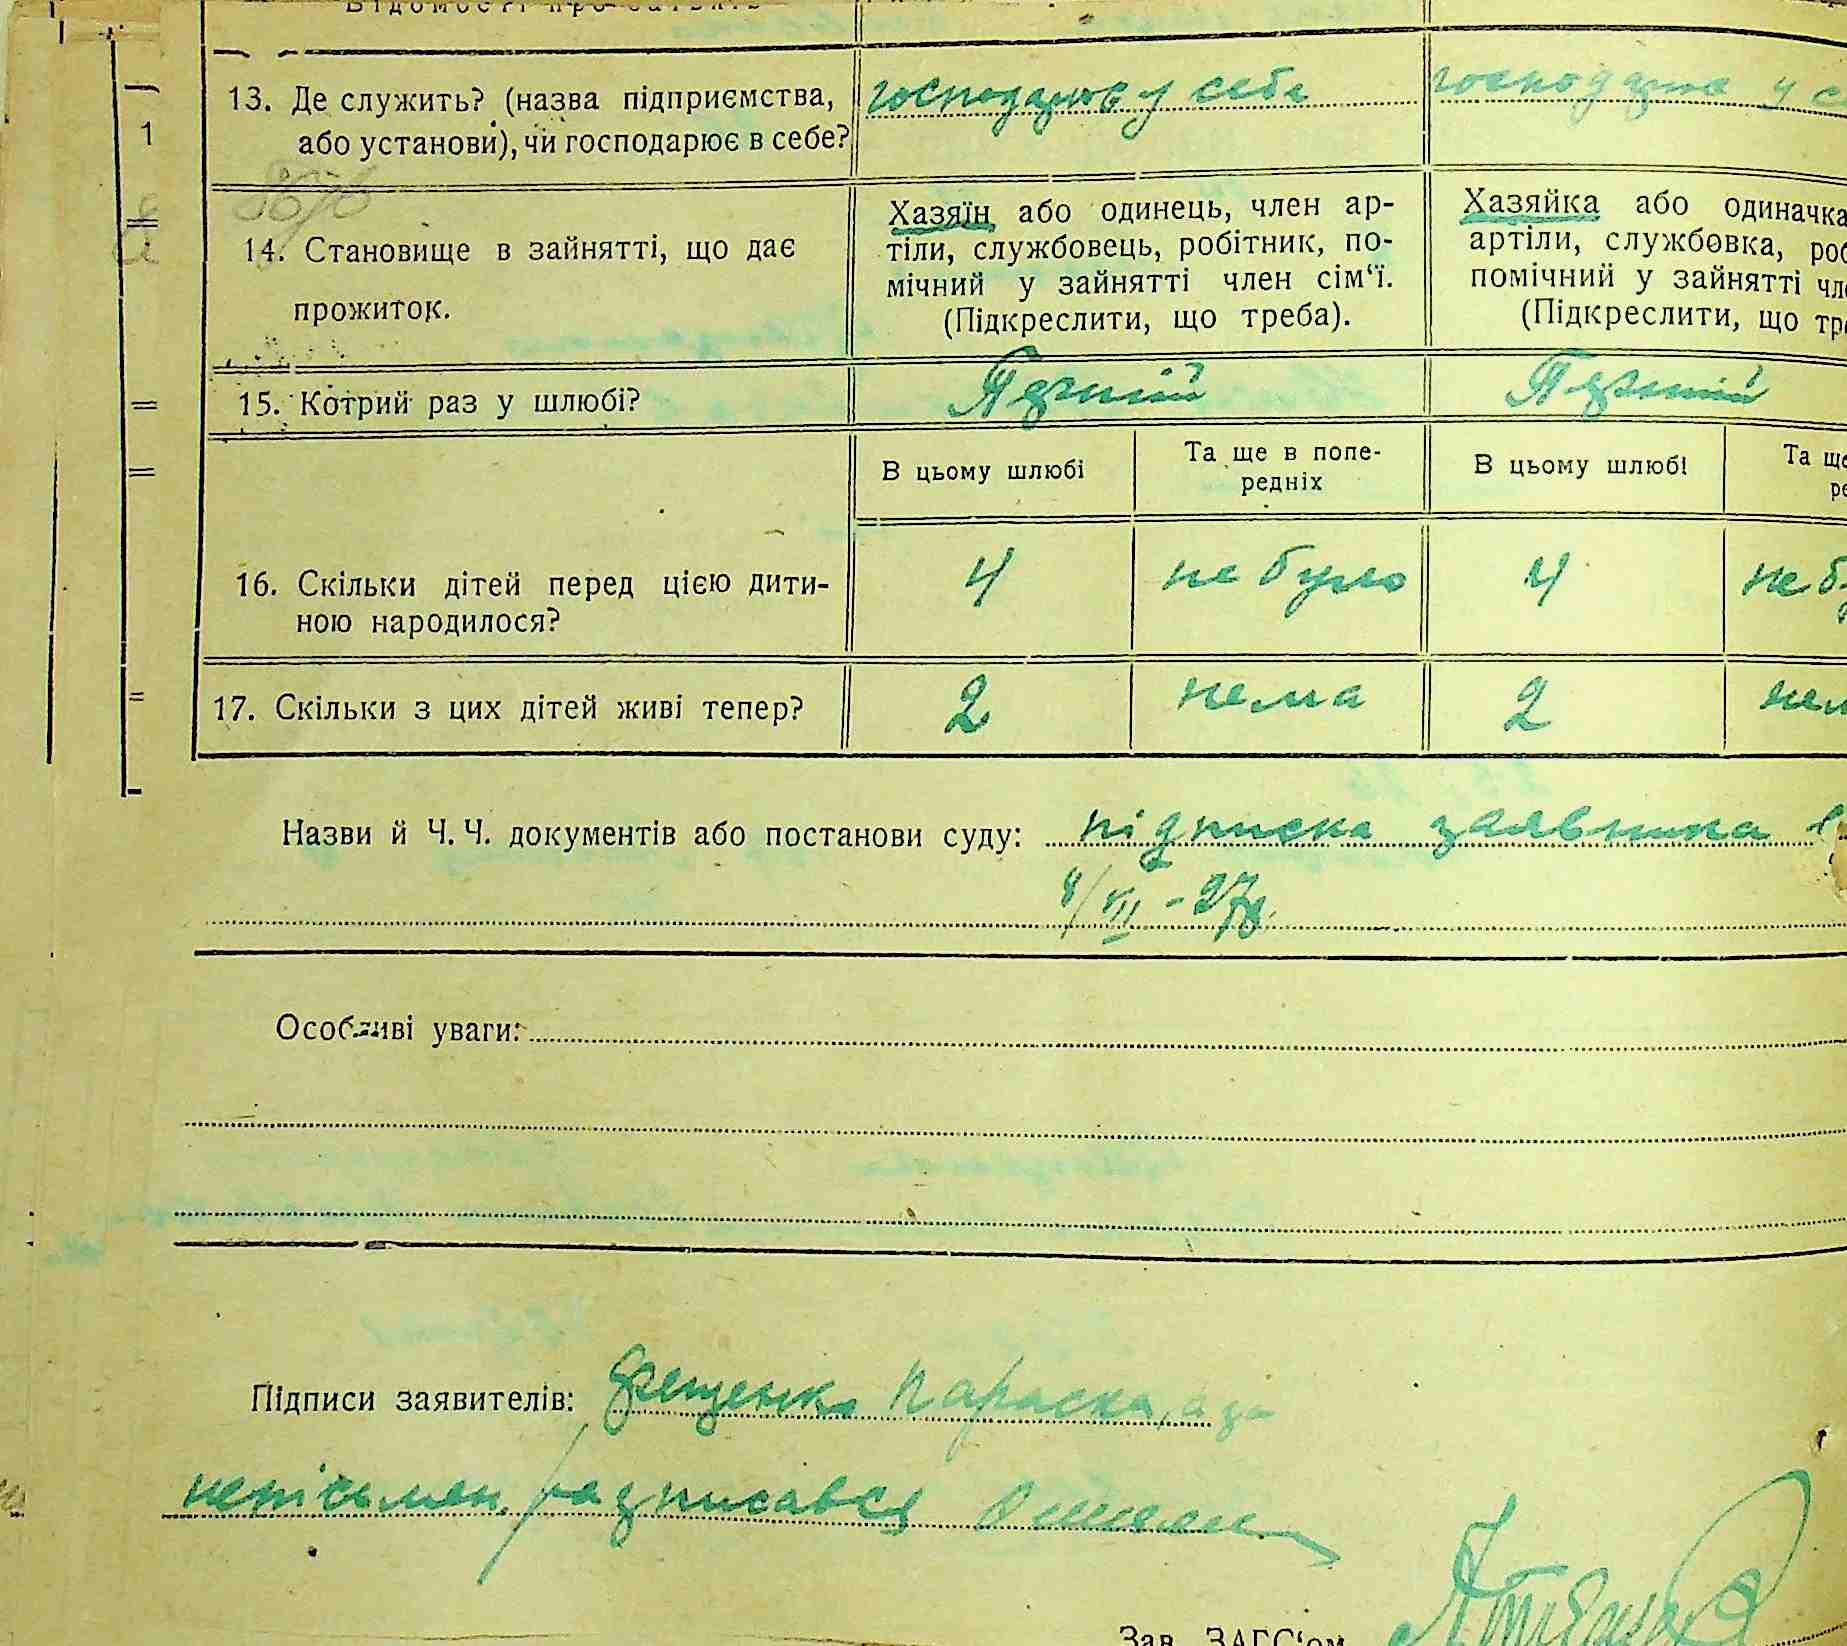 Відомості про батьків
13. Де служить? (назва підприємства, господарює у себе господарює у с
або установи), чи господарює в себе?
1
14. Становище в зайнятті, що дає
прожиток.
Хазяїн або одинець, член ар-
тіли, службовець, робітник, по-
мічний у зайнятті член сім‘ї.
(Підкреслити, що треба).
Хазяйка або одиначка
артіли, службовка, роб
помічний у зайнятті чл
(Підкреслити, що тре
15. Котрий раз у шлюбі? Перший Перший
В цьому шлюбі
Та ще в попе-
редніх
В цьому шлюбі
Та ще
ре
16. Скільки дітей перед цією дити-
ною народилося?
4 не було 4 не б
17. Скільки з цих дітей живі тепер? 2 нема 2 нем
Назви й Ч. Ч. документів або постанови суду: підписка заявника
8/VII - 27р.
Особливі уваги:
Підписи заявителів: Параска, а за
неписьмен. расписався
Зав. ЗАГС‘ом